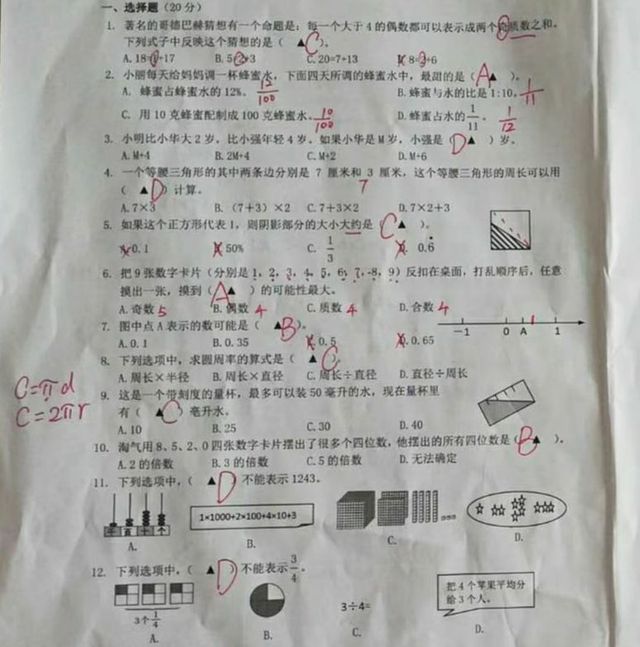 一、选择题（20分）
1. 著名的哥德巴赫猜想有一个命题是：每一个大于4的偶数都可以表示成两个奇质数之和。
下列式子中反映这个猜想的是（ ▲C ）。
A. 18=1+17 B. 5=2+3 C. 20=7+13 D. 8=2+6
2. 小丽每天给妈妈调一杯蜂蜜水，下面四天所调的蜂蜜水中，最甜的是（ A ▲ ）。
A. 蜂蜜占蜂蜜水的12%。 12/100 B. 蜂蜜与水的比是1:10。 1/11
C. 用10克蜂蜜配制成100克蜂蜜水。 10/100 D. 蜂蜜占水的1/11。 1/12
3. 小明比小华大2岁，比小强年轻4岁。如果小华是M岁，小强是（ D ▲ ）岁。
A. M+4 B. 2M+4 C. M+2 D. M+6
4. 一个等腰三角形的其中两条边分别是7厘米和3厘米，这个等腰三角形的周长可以用
（ ▲D ）计算。 7
A. 7×3 B. （7+3）×2 C. 7+3×2 D. 7×2+3
5. 如果这个正方形代表1，则阴影部分的大小大约是（ C ▲ ）。
A. 0.1 B. 50% C. 1/3 D. 0.6̇
6. 把9张数字卡片（分别是1，2，3，4，5，6，7，8，9）反扣在桌面，打乱顺序后，任意
摸出一张，摸到（ A ▲ ）的可能性最大。
A. 奇数 5 B. 偶数 4 C. 质数 4 D. 合数 4
7. 图中点A表示的数可能是（ ▲B ）。
−1 0 A 1
A. 0.1 B. 0.35 C. 0.5 D. 0.65
8. 下列选项中，求圆周率的算式是（ ▲C ）
A. 周长×半径 B. 周长×直径 C. 周长÷直径 D. 直径÷周长
C=πd
C=2πr
9. 这是一个带刻度的量杯，最多可以装50毫升的水，现在量杯里
有（ ▲C ）毫升水。
A. 10 B. 25 C. 30 D. 40
10. 淘气用8、5、2、0四张数字卡片摆出了很多个四位数，他摆出的所有四位数是（ B ▲ ）。
A. 2的倍数 B. 3的倍数 C. 5的倍数 D. 无法确定
11. 下列选项中，（ ▲D ）不能表示1243。
1×1000+2×100+4×10+3
A. B. C. D.
12. 下列选项中，（ ▲D ）不能表示3/4。
3个1/4
3÷4=
把4个苹果平均分
给3个人。
A. B. C. D.